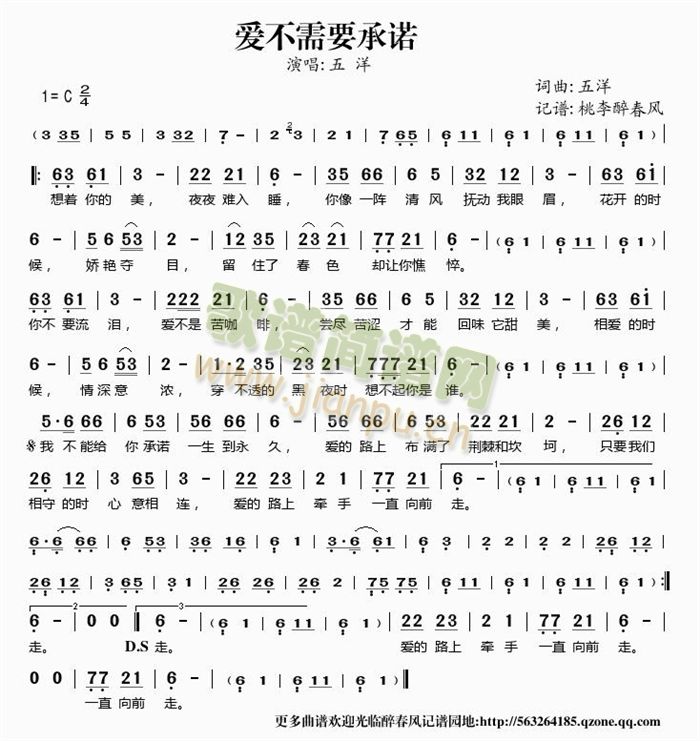 爱不需要承诺
演唱: 五 洋
1= C 2/4
词曲: 五洋
记谱: 桃李醉春风
(3 35 | 5 5 | 3 32 | 7 - | 2 2·3 | 2 1 | 7 65 | 6 11 | 6 1 | 6 11 | 6 1)
63 61 | 3 - | 22 21 | 6 - | 35 66 | 6 5 | 32 12 | 3 - | 63 61
想着 你的 美， 夜夜 难入 睡， 你像 一阵 清 风 抚动 我眼 眉， 花开 的时
6 - | 5 6 53 | 2 - | 12 35 | 23 21 | 77 21 | 6 - | (6 1 | 6 11 | 6 1)
候， 娇 艳 夺 目， 留 住了 春 色 却让 你憔 悴。
63 61 | 3 - | 222 21 | 6 - | 35 66 | 6 5 | 32 12 | 3 - | 63 61
你不 要流 泪， 爱不是 苦咖 啡， 尝尽 苦涩 才 能 回味 它甜 美， 相爱 的时
6 - | 5 6 53 | 2 - | 1·2 35 | 23 21 | 777 21 | 6 - | (6 1 | 6 11 | 6 1)
候， 情 深 意 浓， 穿 不透的 黑 夜时 想不起 你是 谁。
5·6 66 | 6 53 | 56 66 | 6 - | 56 66 | 6 53 | 22 21 | 2 - | 26 12
𝄋我 不能给 你 承诺 一生 到永 久， 爱的 路上 布 满了 荆棘 和坎 坷， 只要 我们
26 35 | 3 21 | 2 - | 22 23 | 2 1 | 77 21 | 6 - | (6 1 | 6 11 | 6 1
相守 的时 心 意相 连， 爱的 路上 牵 手 一直 向前 走。
6·6 66 | 53 32 | 16 16 | 1 6 1 | 3·6 61 | 6 - | 22 32 | 2 - | 26 12
26 12 | 3 65 | 3 1 | 26 26 | 26 2 | 75 75 | 6 1 | 6 11 | 6 1) :‖
6 - | 0 0 ‖ 6 - | (6 1 | 6 11 | 6 1) | 22 23 | 2 1 | 77 21 | 6 -
走。 D.S 走。 爱的 路上 牵 手 一直 向前 走。
0 0 | 77 21 | 6 - | (6 1 | 6 11 | 6 1 | 6 11 | 6 1 | 6 -) ‖
一直 向前 走。
更多曲谱欢迎光临醉春风记谱园地:http://563264185.qzone.qq.com/
歌谱简谱网
www.jianpu.cn